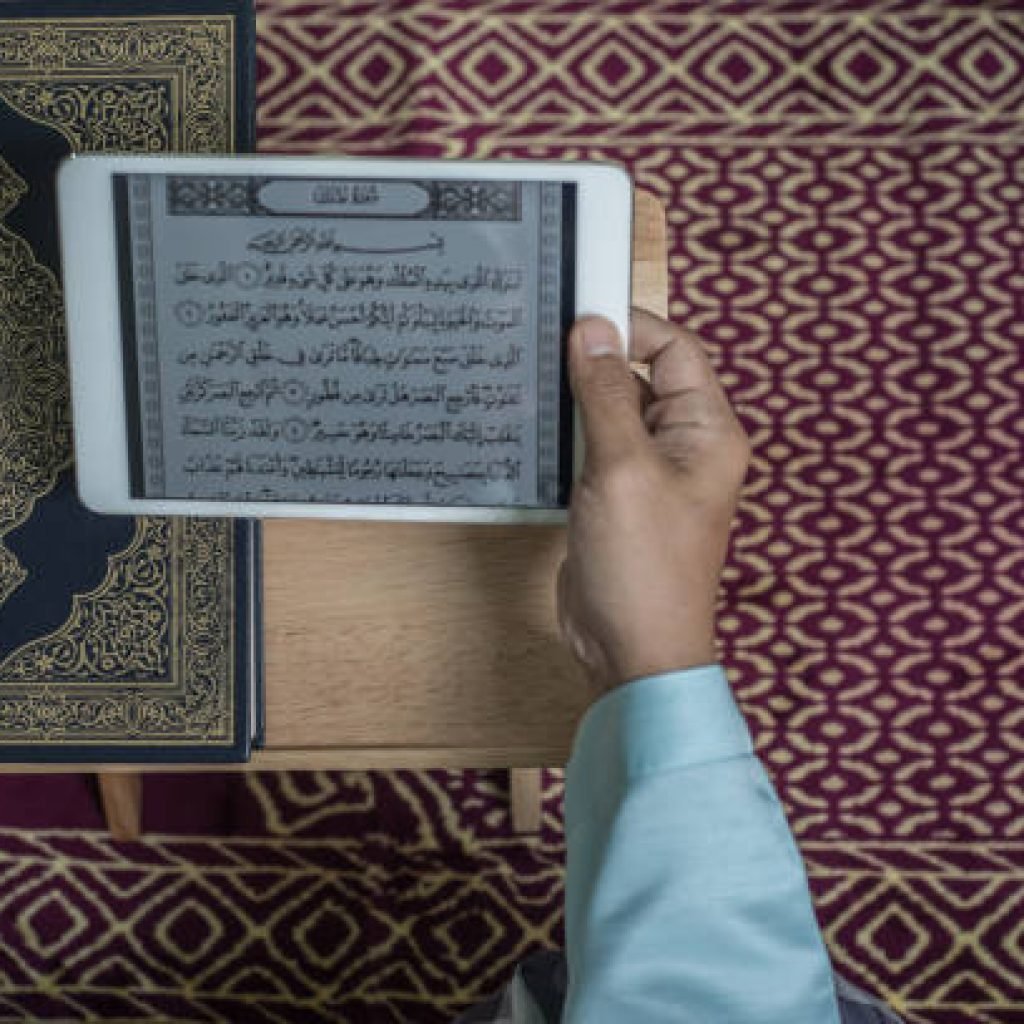 سورة الملك
بسم الله الرحمن الرحيم
تبارك الذي بيده الملك وهو على كل شيء قدير ١ الذي خلق
الموت والحياة ليبلوكم أيكم أحسن عملا وهو العزيز الغفور ٢
الذي خلق سبع سماوات طباقا ما ترى في خلق الرحمن من
تفاوت فارجع البصر هل ترى من فطور ٣ ثم ارجع البصر كرتين
ينقلب إليك البصر خاسئا وهو حسير ٤ ولقد زينا السماء
الدنيا بمصابيح وجعلناها رجوما للشياطين وأعتدنا لهم عذاب